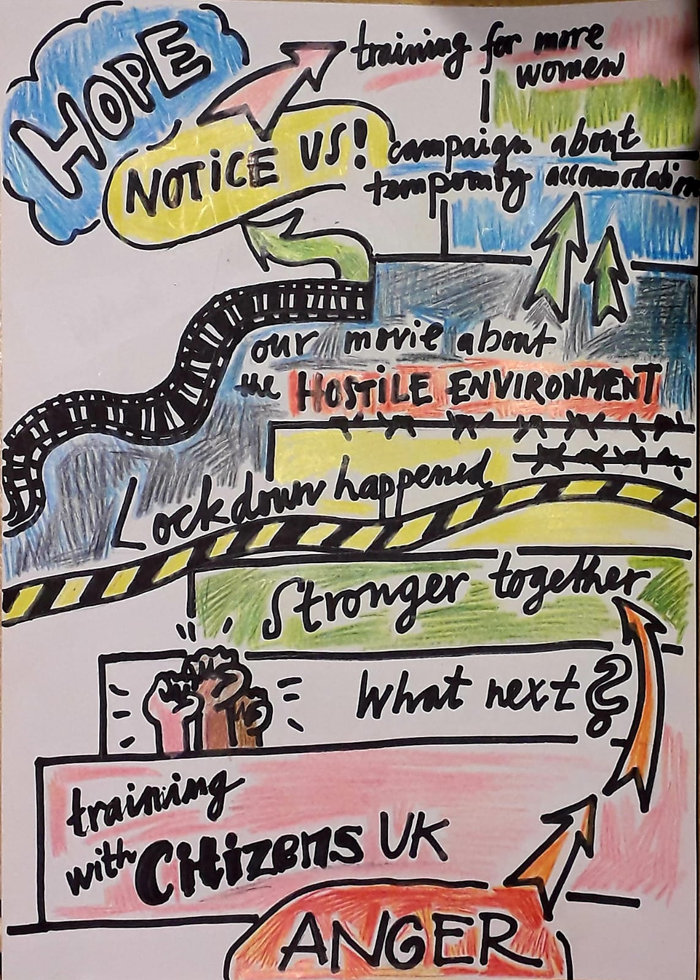 HOPE
training for more
women
NOTICE US!
campaign about
temporary accommodation
our movie about
the HOSTILE ENVIRONMENT
Lockdown happened
Stronger together
What next?
training
with Citizens UK
ANGER